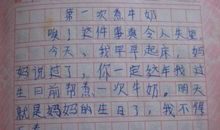 第一次煮牛奶
唉！这件事真令人失望
今天，我早早起床，妈
妈说过了，你一定这年我过
生日前帮煮一次牛奶。明天
就是妈妈的生日了，我不得